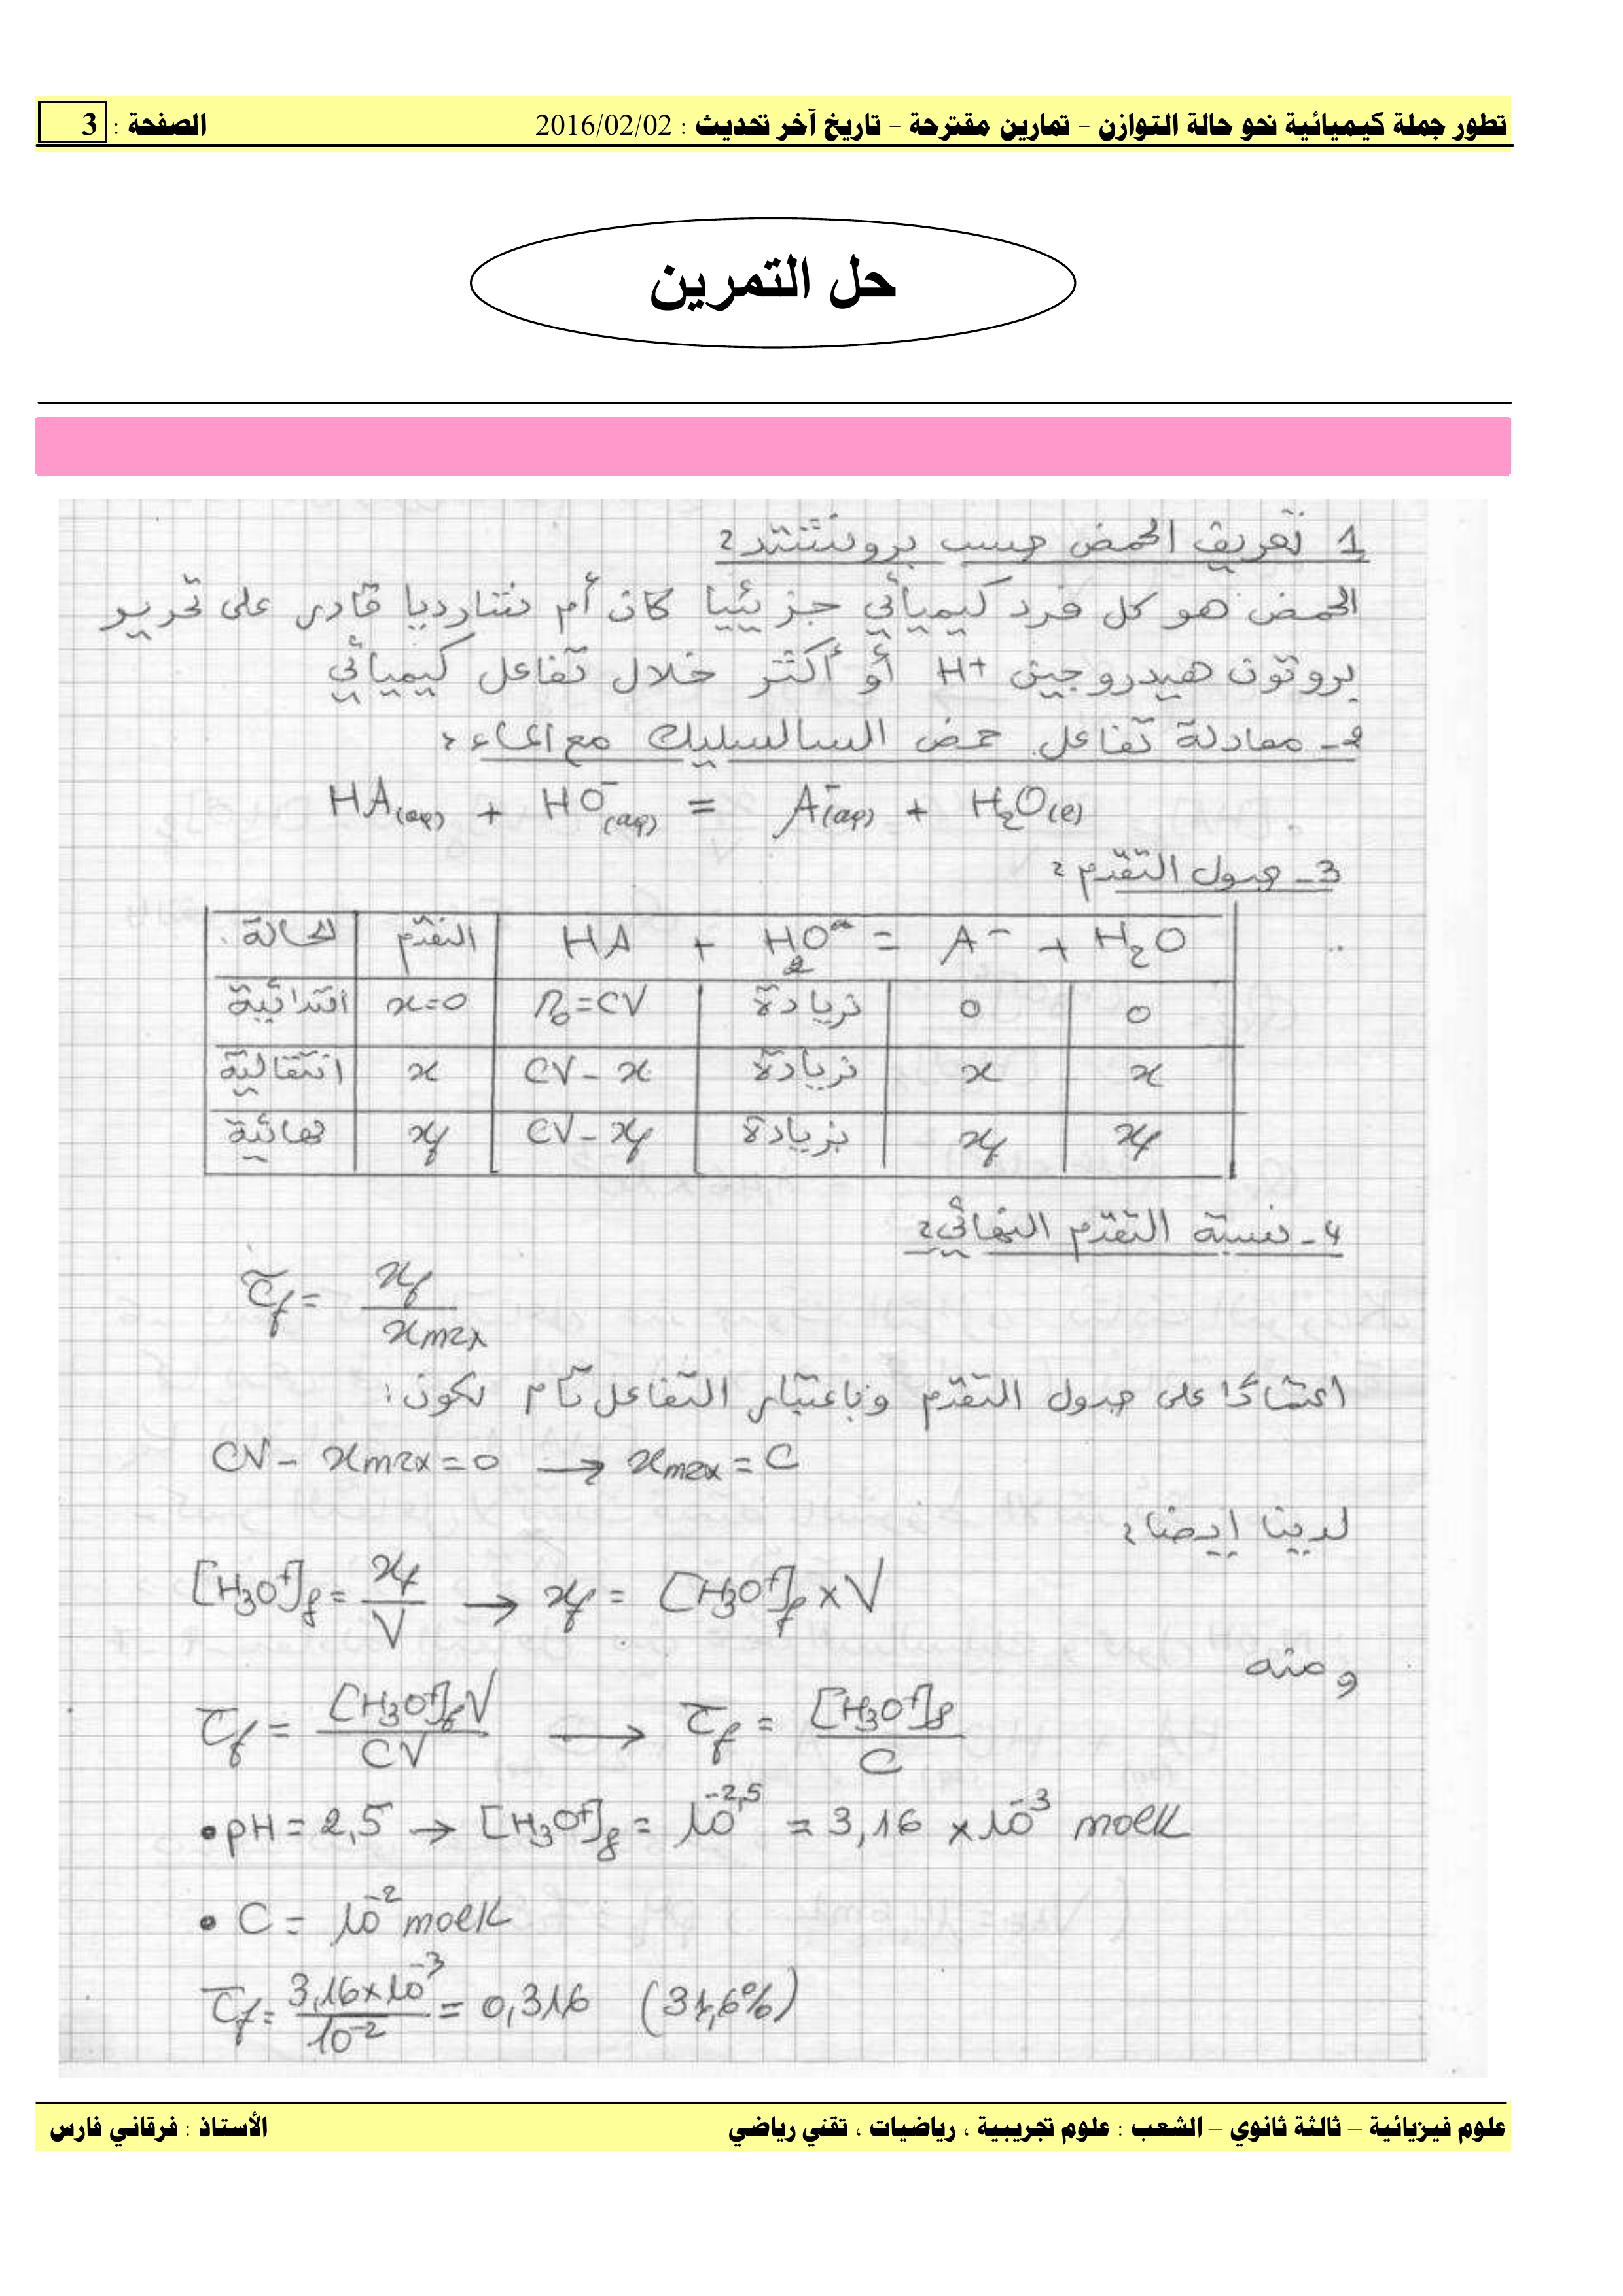 تطور جملة كيميائية نحو حالة التوازن – تمارين مقترحة – تاريخ آخر تحديث : 2016/02/02 الصفحة : 3
حل التمرين
1 تعريف الحمض حسب برونشتد :
الحمض هو كل فرد كيميائي جزيئيا كان أم شارديا قادر على تحرير
بروتون هيدروجين H+ أو أكثر خلال تفاعل كيميائي
2- معادلة تفاعل حمض السالسليك مع الماء :
HA(aq) + HO⁻(aq) = A⁻(aq) + H₂O(l)
3- جدول التقدم :
الحالة التقدم HA + HO⁻ = A⁻ + H₂O
ابتدائية x=0 n₀=CV زيادة 0 0
انتقالية x CV-x زيادة x x
نهائية xf CV-xf بزيادة xf xf
4- نسبة التقدم النهائي :
τf = xf / xmax
اعتمادا على جدول التقدم وباعتبار التفاعل تام يكون :
CV - xmax = 0 → xmax = C
لدينا ايضا :
[H₃O⁺]f = xf / V → xf = [H₃O⁺]f × V
ومنه
τf = [H₃O⁺]f V / CV → τf = [H₃O⁺]f / C
• pH = 2,5 → [H₃O⁺]f = 10⁻²,⁵ = 3,16 × 10⁻³ mol/L
• C = 10⁻² mol/L
τf = 3,16×10⁻³ / 10⁻² = 0,316 (31,6%)
علوم فيزيائية – ثالثة ثانوي – الشعب : علوم تجريبية ، رياضيات ، تقني رياضي الأستاذ : فرقاني فارس